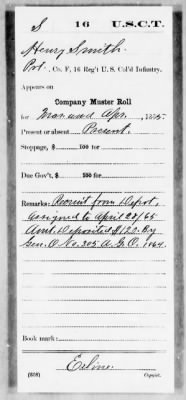 S 16 U.S.C.T.
Henry Smith
Pvt., Co. F, 16 Reg't U. S. Col'd Infantry.
Appears on
Company Muster Roll
for Mar and Apr., 1865.
Present or absent Present.
Stoppage, $ 100 for
Due Gov't, $ 100 for
Remarks: Recruit from Depot,
assigned to April 28/65
Amt. Deposited $120. By
Gen. O No. 305 A.G.O. 1864.
Book mark:
(858) Copyist.